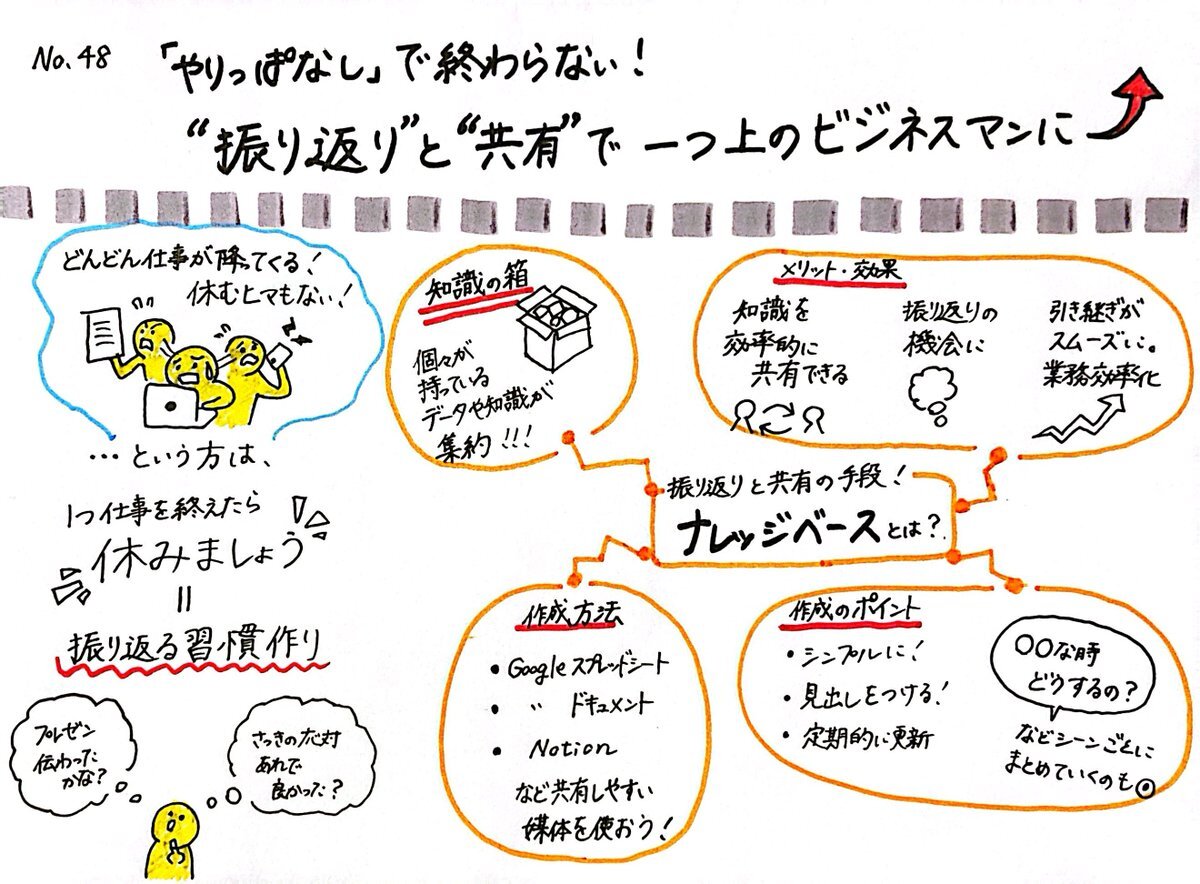 No.48
「やりっぱなし」で終わらない！
“振り返り”と“共有”で一つ上のビジネスマンに
どんどん仕事が降ってくる！
休むヒマもない！
…という方は、
1つ仕事を終えたら
休みましょう
=
振り返る習慣作り
プレゼン
伝わった
かな？
さっきの応対
あれで
良かった？
知識の箱
個々が
持っている
データや知識が
集約!!!
メリット・効果
知識を
効率的に
共有できる
振り返りの
機会に
引き継ぎが
スムーズに。
業務効率化
振り返りと共有の手段！
ナレッジベースとは？
作成方法
・Googleスプレッドシート
・〃 ドキュメント
・Notion
など共有しやすい
媒体を使おう！
作成のポイント
・シンプルに！
・見出しをつける！
・定期的に更新
〇〇な時
どうするの？
などシーンごとに
まとめていくのも◎